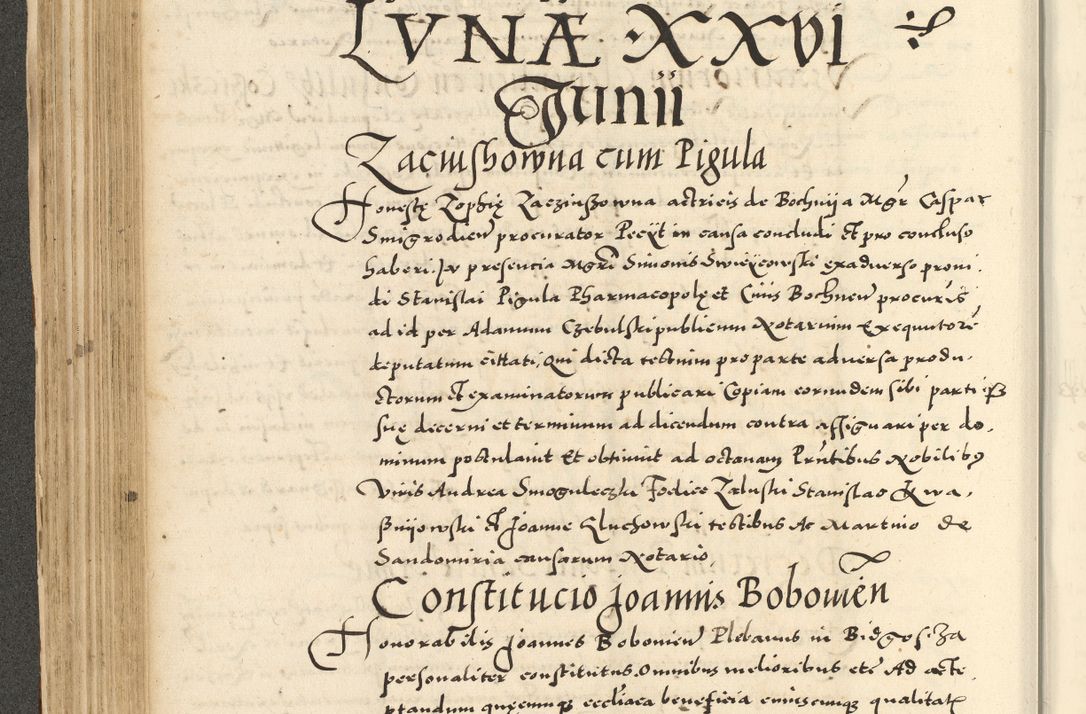 LVNÆ XXVI
Junii
Zaciushowna cum Pigula
Honestę Zophię Zacziuszowna actricis de Bochnija Mgr Caspar
Smigrodien procurator Peciit in causa concludi Et pro concluso
haberi. In presencia Mgri Simonis Swieżcowski exadverso provi-
di Stanislai Pigula Pharmacopolę et Civis Bochnen procuris
ad id per Adamum Czebulski publicum Notarium Exequutore
deputatum cittati, Qui dicta testium pro parte adversa produ-
ctorum Et examinatorum publicari Copiam eorundem sibi parti ipsi
suę decerni et terminum ad dicendum contra assignari per do-
minum postulavit Et obtinuit ad octavam Pntibus Nobilibus
Viris Andrea Smoguleczki Foelice Zaluski Stanislao Kwa-
snijowski Et Joanne Gluchowski testibus Ac Martino de
Sandomiria causarum Notario
Constitucio Joannis Bobowien
Honorabilis Joannes Bobowien Plebanus in Bidgoszcza
personaliter constitutus. Omnibus melioribus etc Ad acce-
ptandum quęcumque eccliaca beneficia cuiuscumque qualitatis